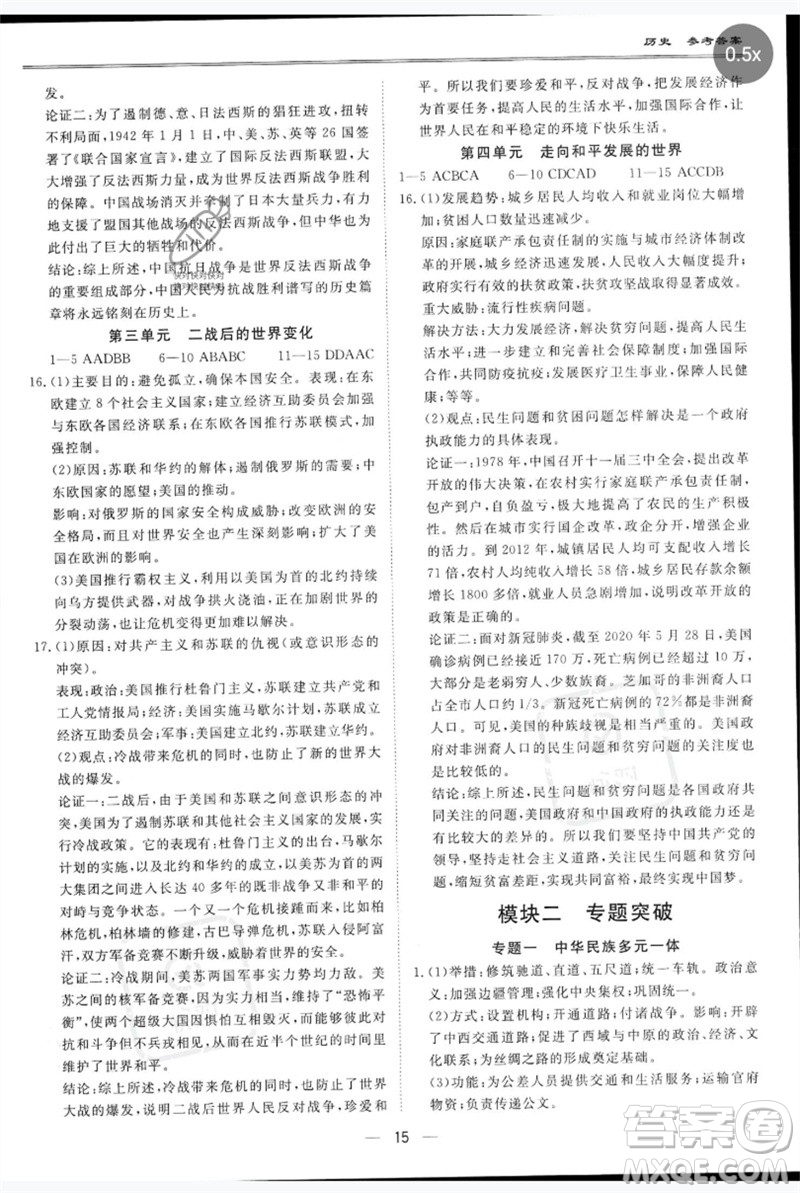 历史 参考答案
0.5x
发。
论证二：为了遏制德、意、日法西斯的猖狂进攻，扭转
不利局面，1942 年 1 月 1 日，中、美、苏、英等 26 国签
署了《联合国家宣言》，建立了国际反法西斯联盟，大
大增强了反法西斯力量，为反法西斯胜利提供了有力
的保障。中国战场消灭了日本大量有生力量，有力
地支援了盟国其他战场的反法西斯战争，但中华也为
此付出了巨大的牺牲和代价。
结论：综上所述，中国抗日战争是世界反法西斯战争
的重要组成部分，中国人民为抗战胜利谱写的历史篇
章将永远铭刻在历史上。
第三单元 二战后的世界变化
1—5 AADBB 6—10 ABABC 11—15 DDAAC
16. (1)主要目的：避免孤立，确保本国安全。表现：在东
欧建立 8 个社会主义国家；经济互助委员会加强苏联
与东欧各国经济联系；在东欧各国推行苏联模式，加
强控制。
(2)原因：苏联和华约的解体；遏制俄罗斯的需要；中
东欧国家的愿望；美国的推动。
影响：对俄罗斯的国家安全构成威胁；改变欧洲的安
全格局，而且对世界安全也产生深刻影响；扩大了美
国在欧洲的影响。
(3)美国推行霸权主义，利用以美国为首的北约持续
向乌方提供武器，对战争拱火浇油，正在加剧世界的
分裂动荡，也让危机变得更加不可预测。
17. (1)原因：对共产主义和苏联的仇视(或意识形态的
冲突)。
表现：政治：美国推行杜鲁门主义，苏联建立共产党和
工人党情报局；经济：美国实施马歇尔计划，苏联建立
经济互助委员会；军事：美国建立北约，苏联建立华约。
(2)观点：冷战带来危机的同时，也防止了新的世界大
战的爆发。
论证一：二战后，由于美国和苏联之间意识形态的冲
突，美国为了遏制苏联和其他社会主义国家的发展，实
行冷战政策。它以杜鲁门主义的出台、马歇尔计划的
实施、北约组织的建立为标志，以美苏为首的两
大集团之间的长达 40 多年的既非战争又非和平的
对峙与竞争状态。其中一个又一个危机接踵而至，如柏
林危机、柏林墙的修建、古巴导弹危机、苏联入侵阿富
汗，双方军备竞赛不断升级，威胁着世界的安全。
论证二：冷战期间，美苏两国军事实力势均力敌，美苏
之间的核军备竞赛，实际上又维持了一种“恐怖平
衡”，使两个超级大国因惧怕相互毁灭，而始终以对抗
和斗争但不兵戎相见，从而在近半个世纪的时间里
维护了世界和平。
结论：综上所述，冷战带来危机的同时，也防止了世界
大战的爆发，说明二战后世界人民反对战争、珍爱和
平。所以我们要珍爱和平，反对战争，把发展经济作
为首要任务，提高人民的生活水平，加强国际合作，让
世界人民在和平稳定的环境下快乐生活。
第四单元 走向和平发展的世界
1—5 ACBCA 6—10 CDCAD 11—15 ACCDB
16. (1)发展趋势：城乡居民人均收入和就业岗位大幅增
加；贫困人口数量迅速减少。
原因：家庭联产承包责任制的实施与城市经济体制改
革，城乡经济迅速发展；经济建设取得了巨大进步；
政府实行有效的扶贫政策，扶贫攻坚战取得显著成效。
重大威胁：流行性疾病问题。
解决方法：大力发展经济，解决民生问题，提高人民生
活水平；建立和完善社会保障制度；加强国际合作，
共同防疫抗疫；发展医疗卫生事业，保障人民健
康；等等。
(2)观点：民生问题和贫困问题怎样解决是一个政府
执政能力的具体表现。
论证一：1978 年，中国召开十一届三中全会，做出改革
开放的伟大决策，在农村实行家庭联产承包责任制，
包产到户，自负盈亏，极大地提高了农民的生产积极
性。然后在城市实行国企改革，政企分开，增强企业活
力。到 2012 年，城镇居民人均可支配收入增长
71 倍，农村人均纯收入增长 58 倍，城乡居民存款余额
增长 1800 多倍，就业人员急剧增加，说明改革开放的
政策是正确的。
论证二：面对新冠肺炎，截至 2020 年 5 月 28 日，美国
确诊病例已经接近 170 万，死亡病例也超过 10 万，
大部分是老弱穷人、少数族裔。芝加哥的非洲裔人口
占全市人口约 1/3。新冠死亡病例的 72％都是非洲裔
人口。美国的种族歧视是相当严重的。美国政府
对非洲裔人口的民生问题和贫穷问题的关注度也
是比较低的。
结论：综上所述，民生问题和贫穷问题是各国政府共
同关注的问题，美国政府和中国政府的执政能力有
比较大的差异的。所以我们要坚持中国共产党的
领导，坚持走社会主义道路，不断解决人民民生问
题，缩短贫富差距，实现共同富裕，早日实现中国梦。
模块二 专题突破
专题一 中华民族多元一体
1. (1)举措：修筑驰道、直道、五尺道；统一车轨。政治意
义：加强边疆管理；强化中央集权；巩固统一。
(2)方式：设置机构；开通道路；付诸战争。影响：开辟
了中西交通道路；促进了西域与中原的政治、经济、文
化联系；为丝绸之路的形成奠定基础。
(3)功能：为公差人员提供交通和生活服务；运输官府
物资；负责传递公文。
15
答案圈
MXQE.COM